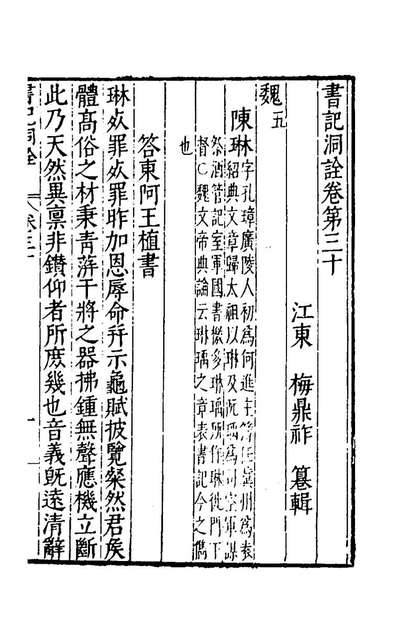 書記洞詮卷第三十
江東 梅鼎祚 纂輯
魏五
陳琳字孔璋廣陵人初為何進主簿避
冀州為袁
紹典文章歸太祖以琳及阮瑀為司空軍謀
祭酒管記室軍國書檄多琳瑀所作琳徙門下
督○魏文帝典論云琳瑀之章表書記今之儁
也
答東阿王植書
琳死罪死罪昨加恩辱命幷示龜賦披覽粲然君侯
體高俗之材秉青蓱干將之器拂鍾無聲應機立斷
此乃天然異稟非鑽仰者所庶幾也音義既遠清辭
書記洞詮 卷三十 一